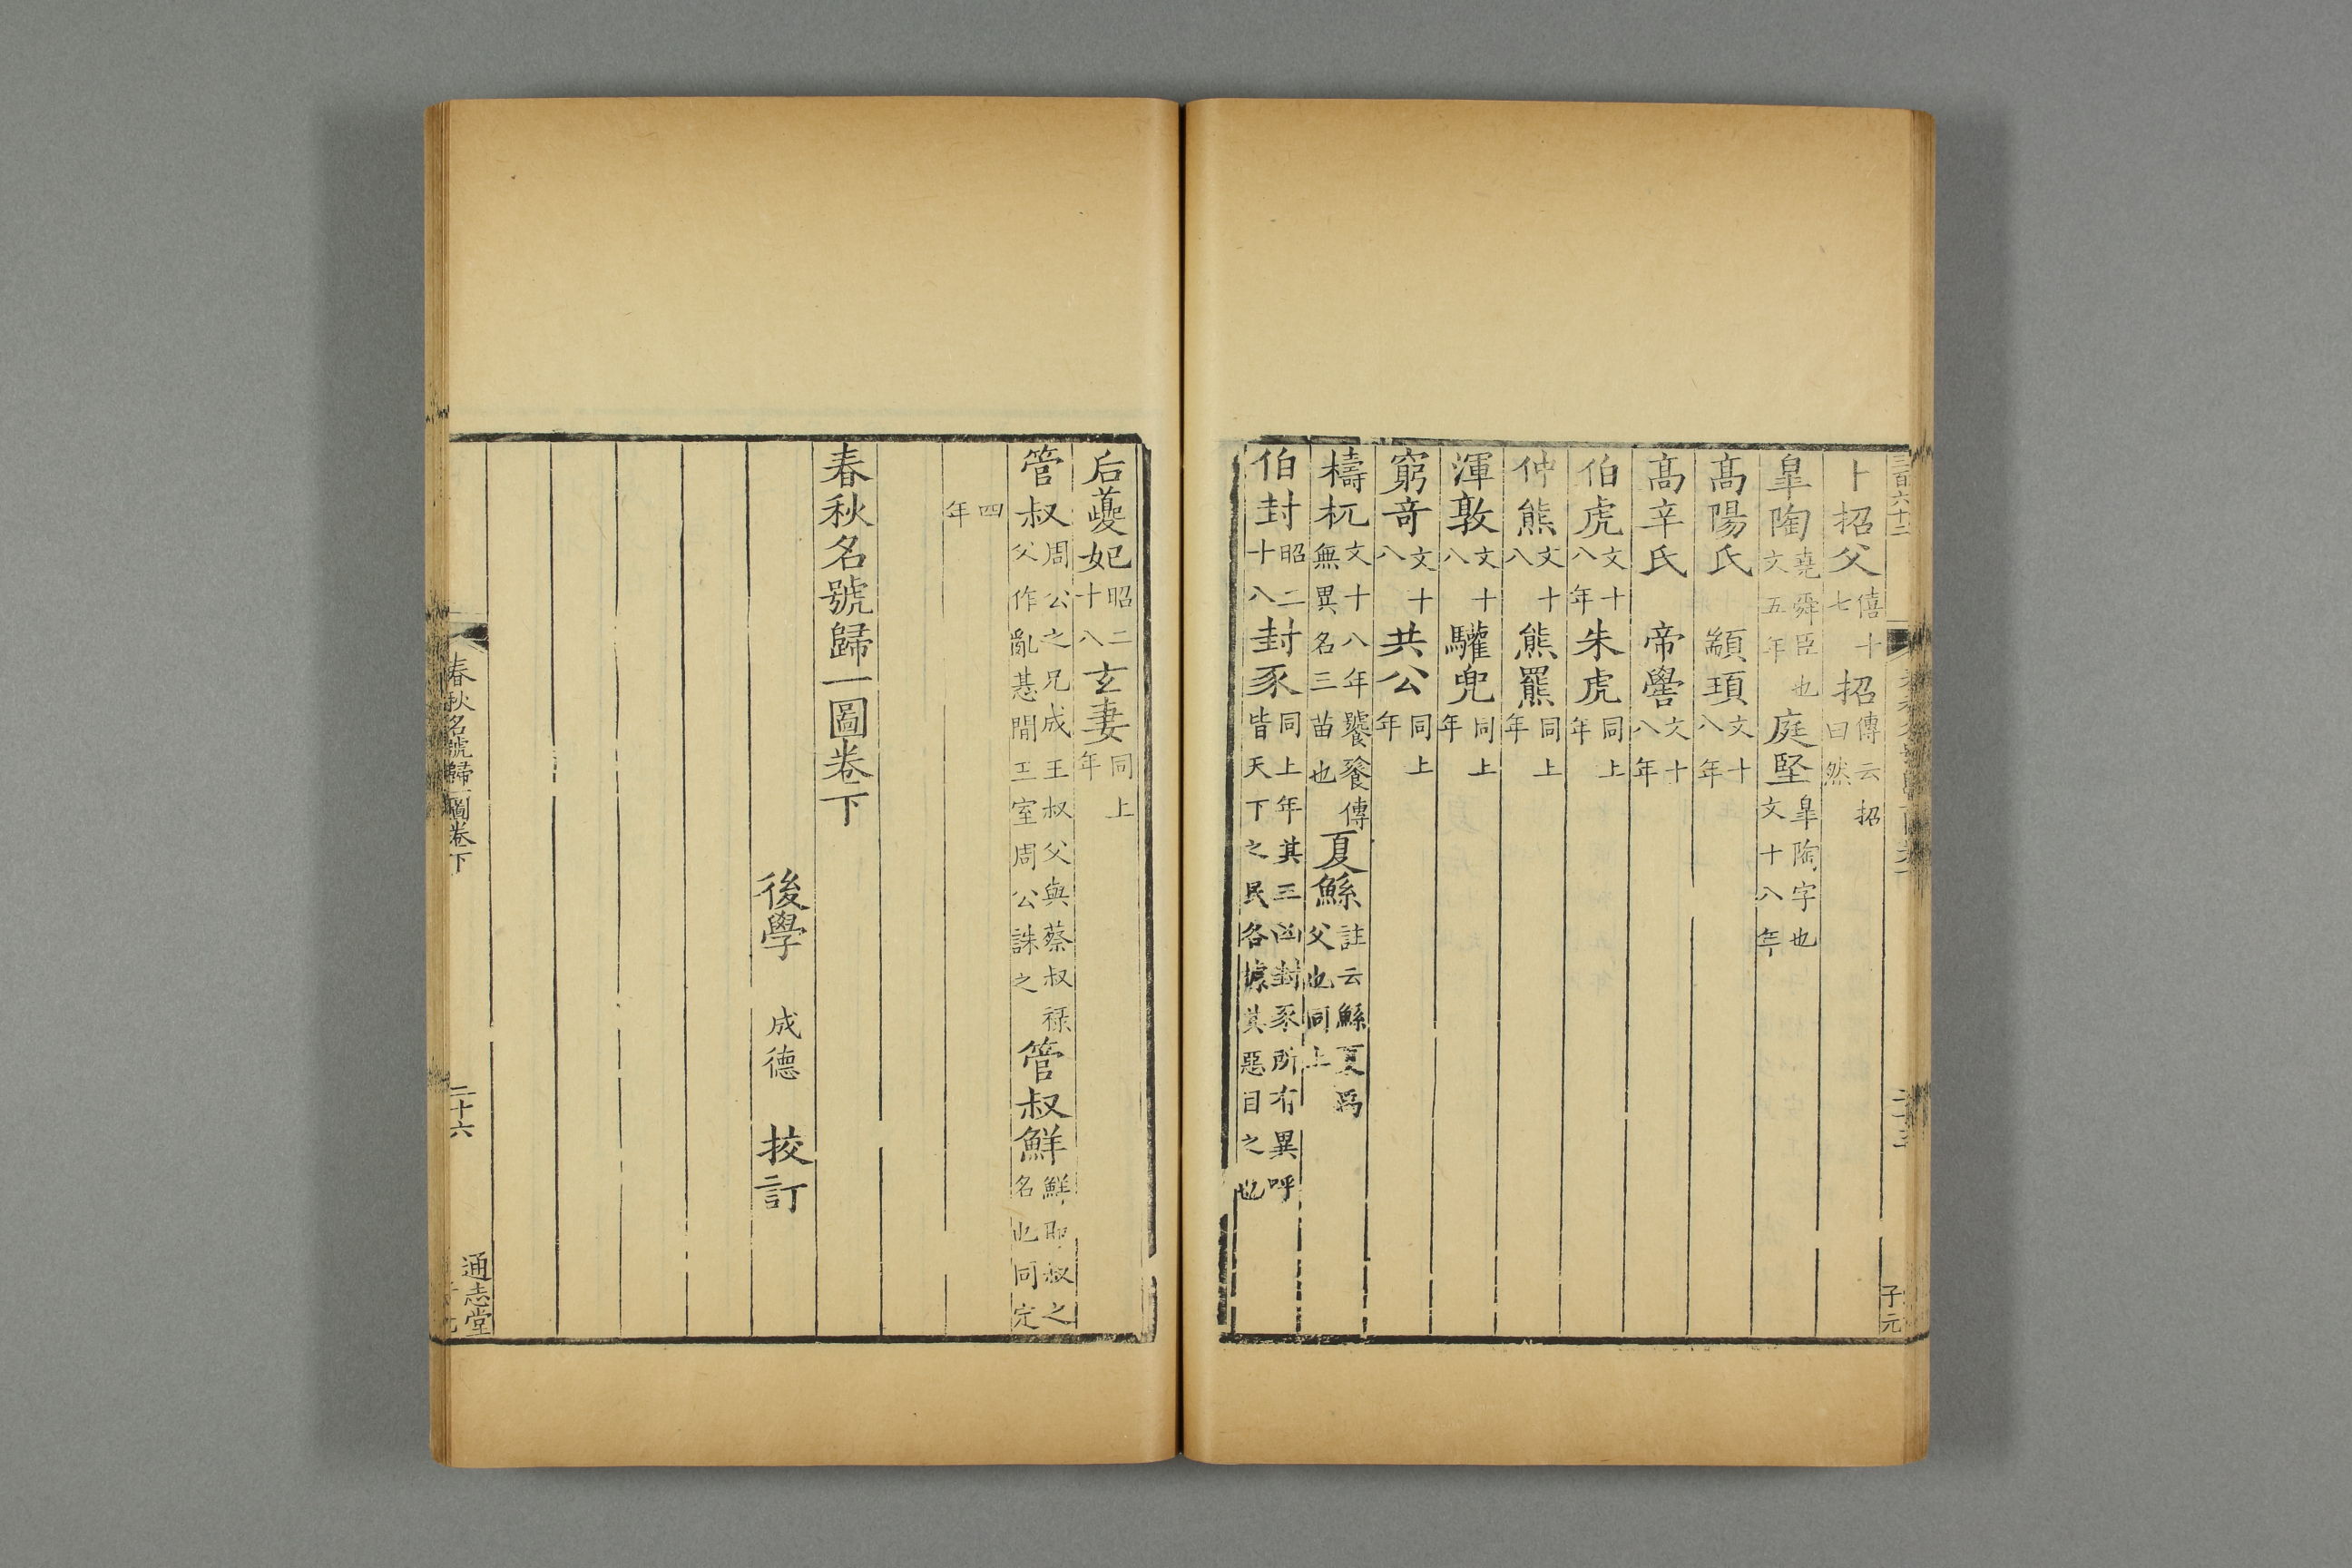 三百六十二
卜招父僖十七招傳云招曰然
臯陶堯舜臣也文五年庭堅臯陶字也文十八年
髙陽氏　顓頊文十八年
髙辛氏　帝嚳文十八年
伯虎文十八年朱虎同上年
仲熊文十八熊羆同上年
渾敦文十八驩兜同上年
窮竒文十八共公同上年
檮杌文十八年饕餮傳無異名三苗也夏鯀註云鯀夏爲父也同上
伯封昭二十八封豕同上年其三凶封豕所有異呼皆天下之民各據其惡目之也
子元
后夔妃昭二十八玄妻同上年
管叔周公之兄成王叔父與蔡叔祿父作亂惎間王室周公誅之管叔鮮鮮卽叔之名也同定
四年
春秋名號歸一圖卷下
後學　成德　挍訂
春秋名號歸一圖卷下
二十六
通志堂